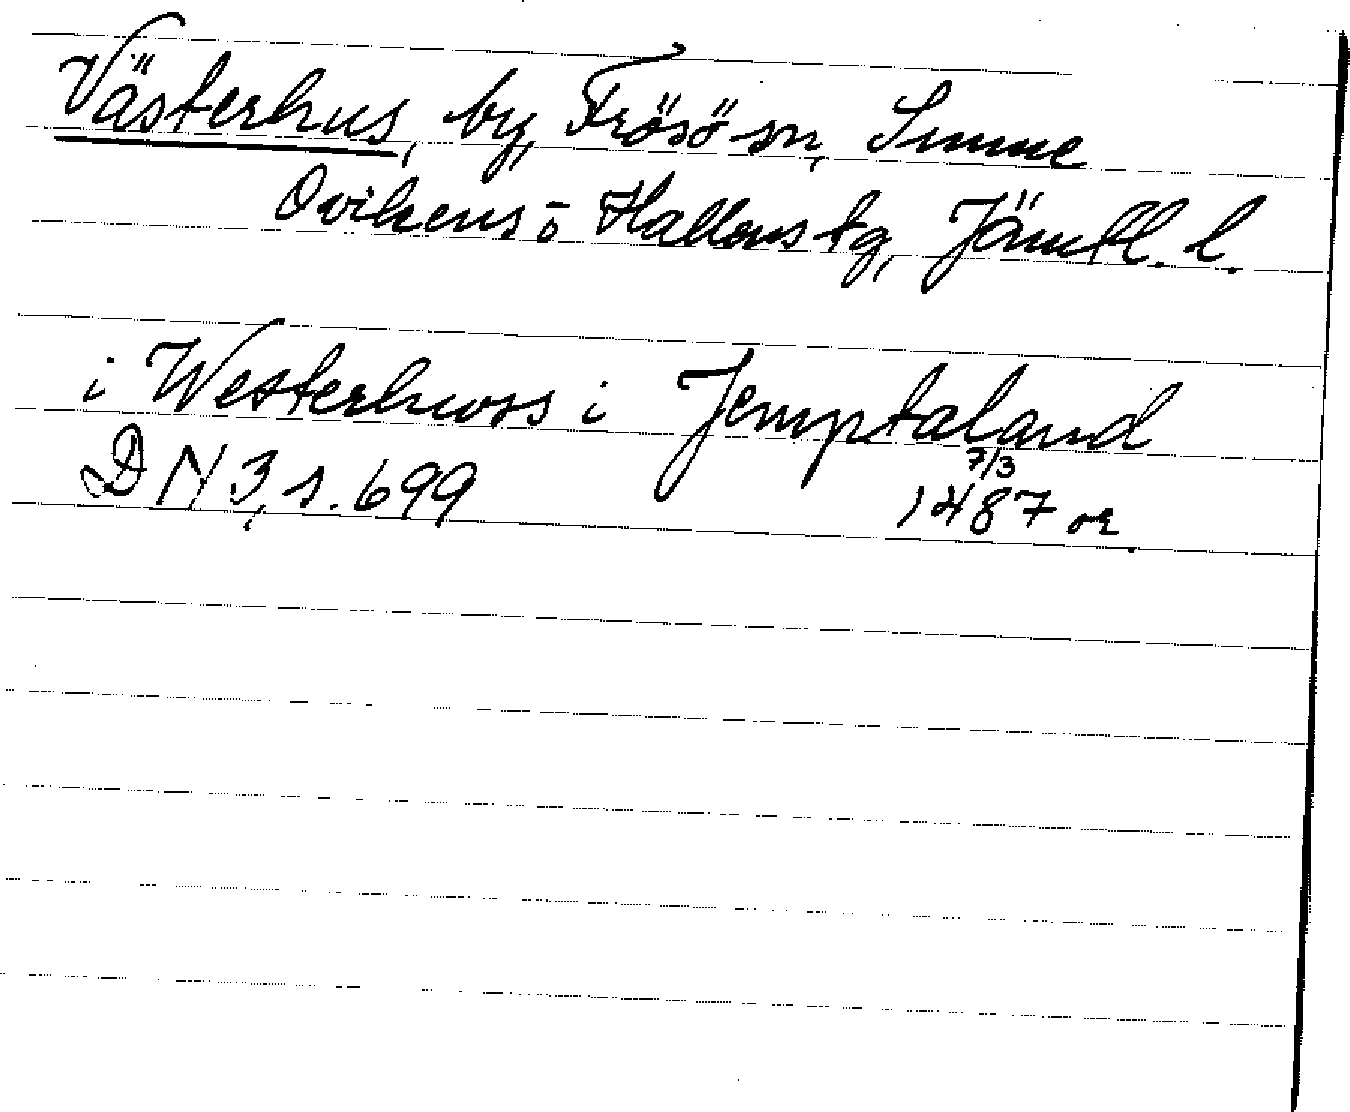 Västerhus, by, Frösö sn, Sunne
Ovikens o Hallens tg, Jämtl. l.
i Westerhwss i Jemptaland
DN 3, s. 699 7/3 1487 or.